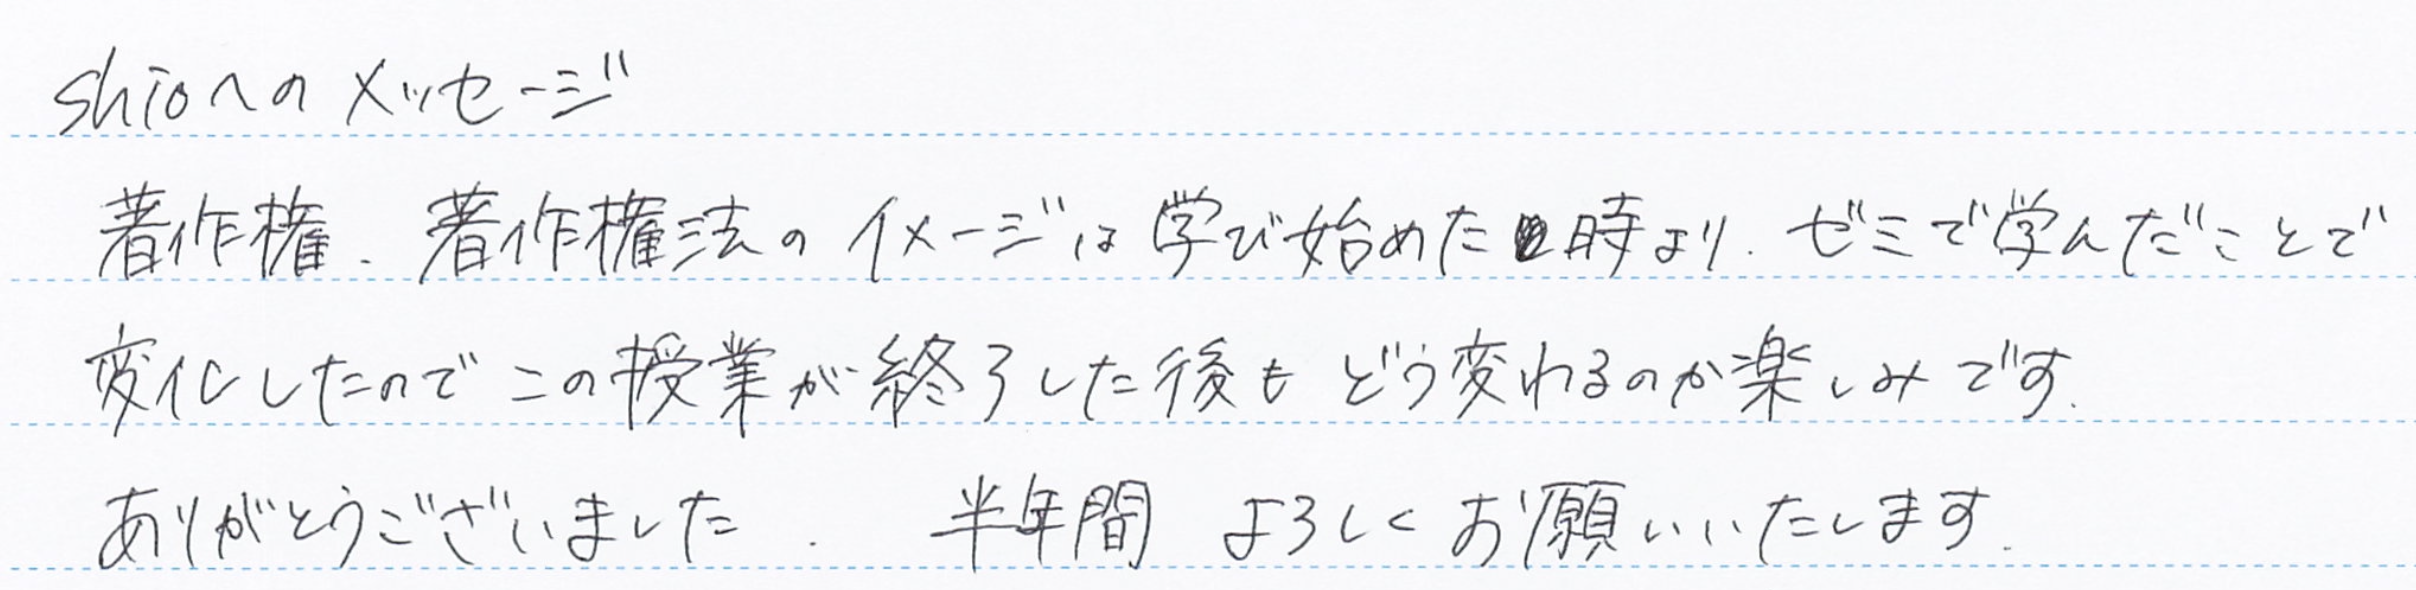 shioへのメッセージ
著作権.著作権法のイメージは学び始めた時より.ゼミで学んだことで
変化したのでこの授業が終了した後もどう変わるのか楽しみです.
ありがとうございました. 半年間 よろしくお願いいたします.